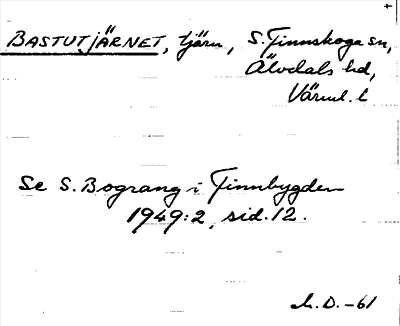 BASTUTJÄRNET, tjärn, S. Finnskoga sn,
Älvdals hd,
Värml. l
Se S. Bograng i Finnbygden
1949:2, sid. 12.
L. D. -61